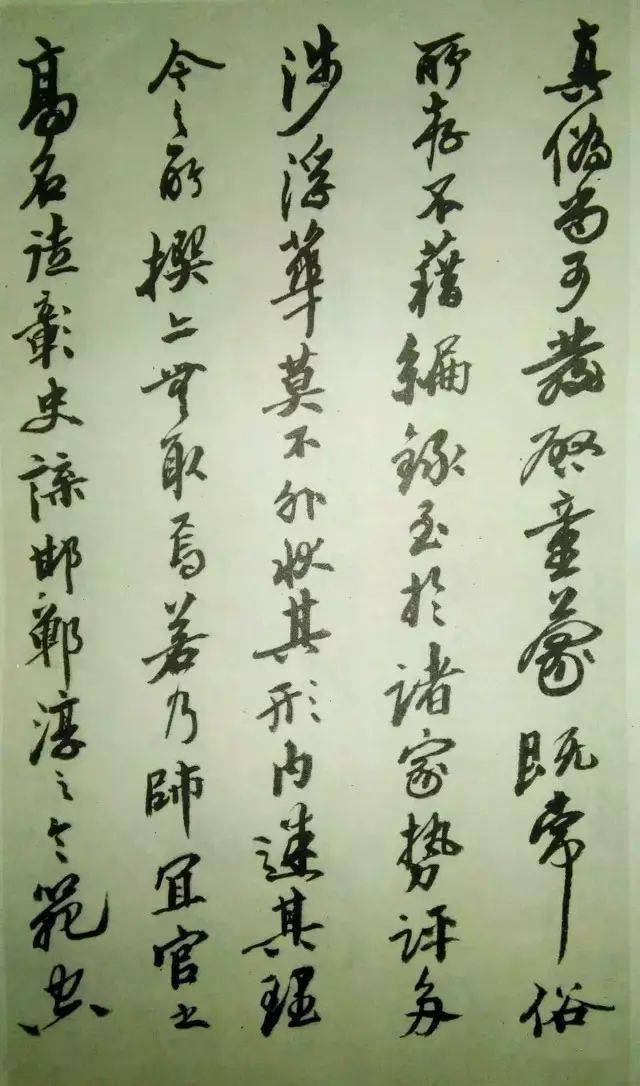 真偽尚可發啓童蒙既常俗
所存不藉編錄至於諸家勢評多
涉浮華莫不外狀其形內迷其理
今之所撰亦無取焉若乃師宜官之
高名徒彰史諜邯鄲淳之令範